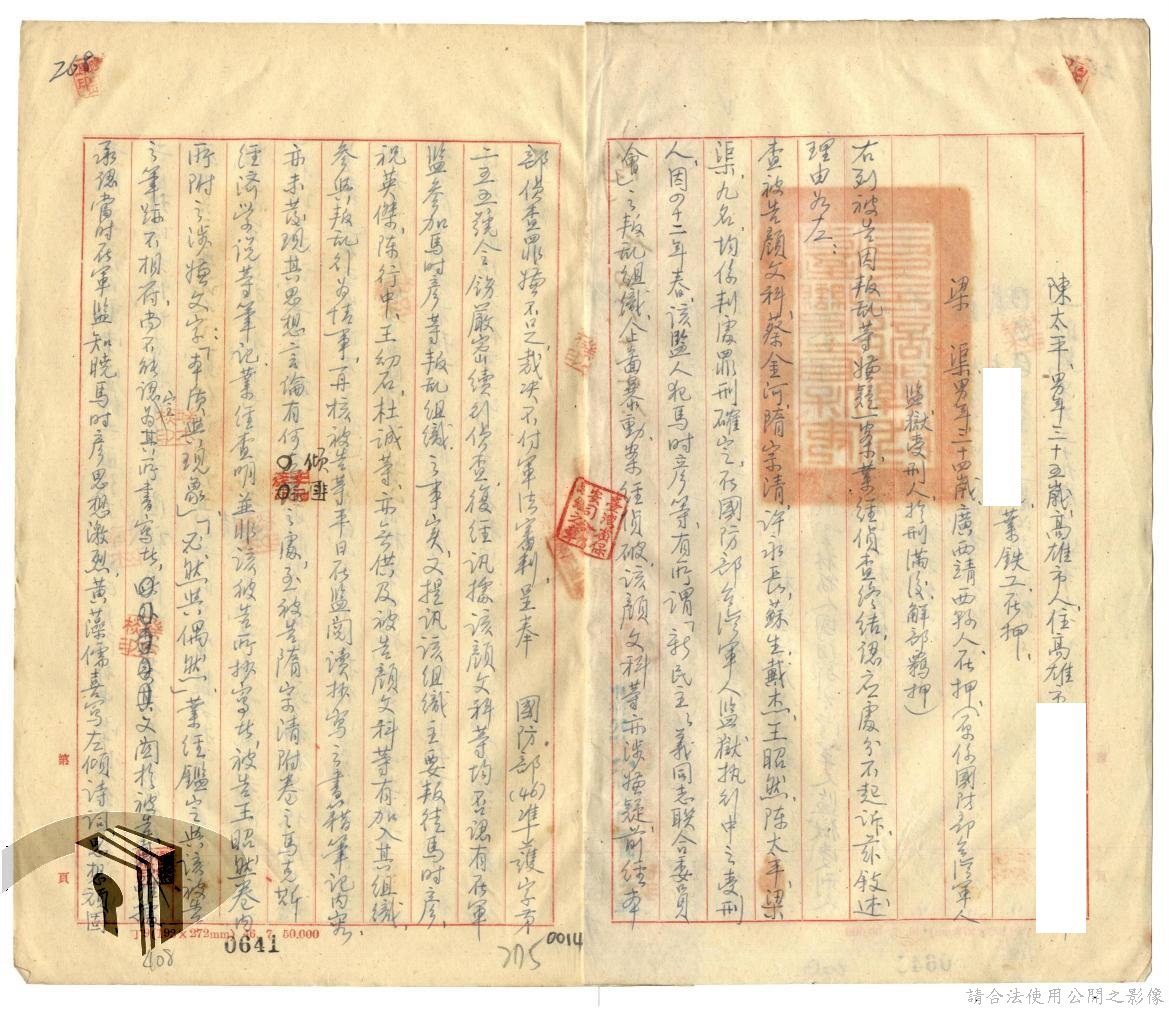 陳太平、男年三十五歲、高雄市人、住高雄市
業鐵工、在押、
梁 渠男年三十四歲、廣西靖西縣人、在押、（原係國防部台灣軍人
監獄受刑人於刑滿後解部羈押）
右列被告因叛亂等嫌疑一案、業經偵查終結、認應處分不起訴、茲敘述
理由如左：
查被告顏文科、蔡金河、隋宗清、許永長、蘇生、戴杰、王昭然、陳太平、梁
渠、九名、均係判處罪刑確定、在國防部台灣軍人監獄執行中之受刑
人、因四十二年春、該監人犯馬時彥等、有所謂「新民主主義同志聯合委員
會」之叛亂組織、企圖暴動案、經偵破、該顏文科等亦涉嫌疑、前經本
部偵查罪嫌不足、裁決不付軍法審判、呈奉 國防部(46)準護字第
二五五號令飭嚴密續行偵查、復經訊據該顏文科等均否認有在軍
監參加馬時彥等叛乱組織之事實、又提訊該組織主要叛徒馬時彥、
祝英傑、陳行中、王幼石、杜誠等、亦無供及被告顏文科等有加入其組織
參與叛乱行為情事、再核被告等平日在監閱讀抄寫之書籍筆記內容、
亦未發現其思想言論有何傾匪之處、至被告隋宗清附卷之馬克斯
經濟学說等筆記、業經查明並非該被告所抄寫者、被告王昭然卷內
所附之涉嫌文字：「本质與現象」「必然與偶然」業經鑑定與該被告
之筆跡不相符、尚不能認定為其所書寫者、
承認當時在軍監知曉馬時彥思想激烈、黃藻儒喜寫左傾詩詞思想頑固
第 頁
268
0641
408
275
0014
請合法使用公開之影像